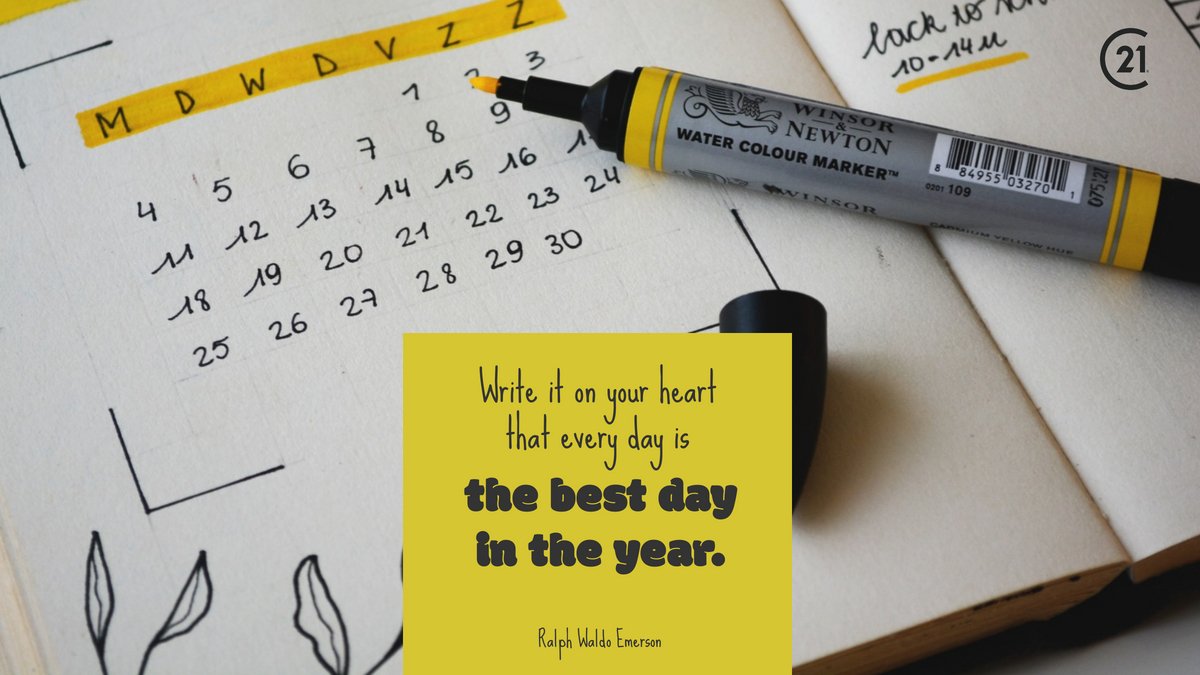 M D W D V Z Z
1 2 3
4 5 6 7 8 9
11 12 13 14 15 16
18 19 20 21 22 23 24
25 26 27 28 29 30
back to
10-14u
21
WINSOR
&
NEWTON
WATER COLOUR MARKER™
8 84955 03270 1
0201 109
WINSOR
CADMIUM YELLOW HUE
Write it on your heart
that every day is
the best day
in the year.
Ralph Waldo Emerson